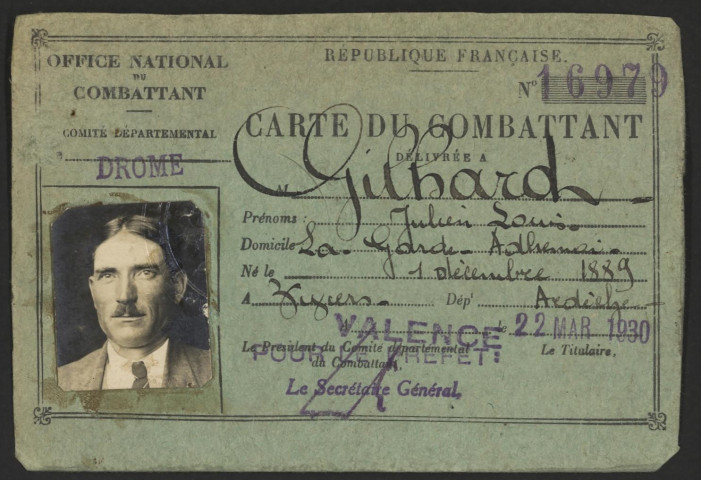 OFFICE NATIONAL
DU
COMBATTANT
COMITÉ DÉPARTEMENTAL
DROME
RÉPUBLIQUE FRANÇAISE.
N° 16979
CARTE DU COMBATTANT
DÉLIVRÉE A
M Gilhard
Prénoms : Julien Louis
Domicile La Garde Adhemar
Né le 1 décembre 1889
A Viviers Dépt Ardèche
VALENCE le 22 MAR 1930
Le Président du Comité départemental
du Combattant,
Le Titulaire,
POUR LE PREFET:
Le Secrétaire Général,